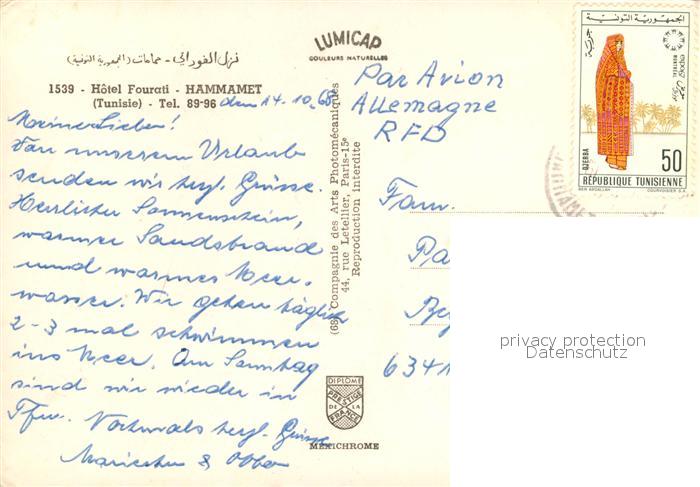 LUMICAP
COULEURS NATURELLES
نزل الفوراتي - حمامات (الجمهورية التونسية)
1539 - Hôtel Fourati - HAMMAMET
(Tunisie) - Tel. 89-96
den 14.10.68
Meine Lieben!
Von unserem Urlaub
senden wir herzl. Grüsse.
Herrlicher Sonnenschein,
warmer Sandstrand
und warmes Meer-
wasser. Wir gehen täglich
2-3 mal schwimmen
ins Meer. Am Sonntag
sind wir wieder in
Ffm. Nochmals herzl. Grüsse
&
Compagnie des Arts Photomécaniques
44, rue Letellier, Paris-15e
Reproduction Interdite
DIPLOME
PRESTIGE
DE LA
FRANCE
MEXICHROME
Par Avion
Allemagne
RFD
Fam.
Pa
6341
الجمهورية التونسية
جربة
MONTREAL
DJERBA
50
RÉPUBLIQUE TUNISIENNE
BEN ABDALLAH
COURVOISIER S.A.
privacy protection
Datenschutz